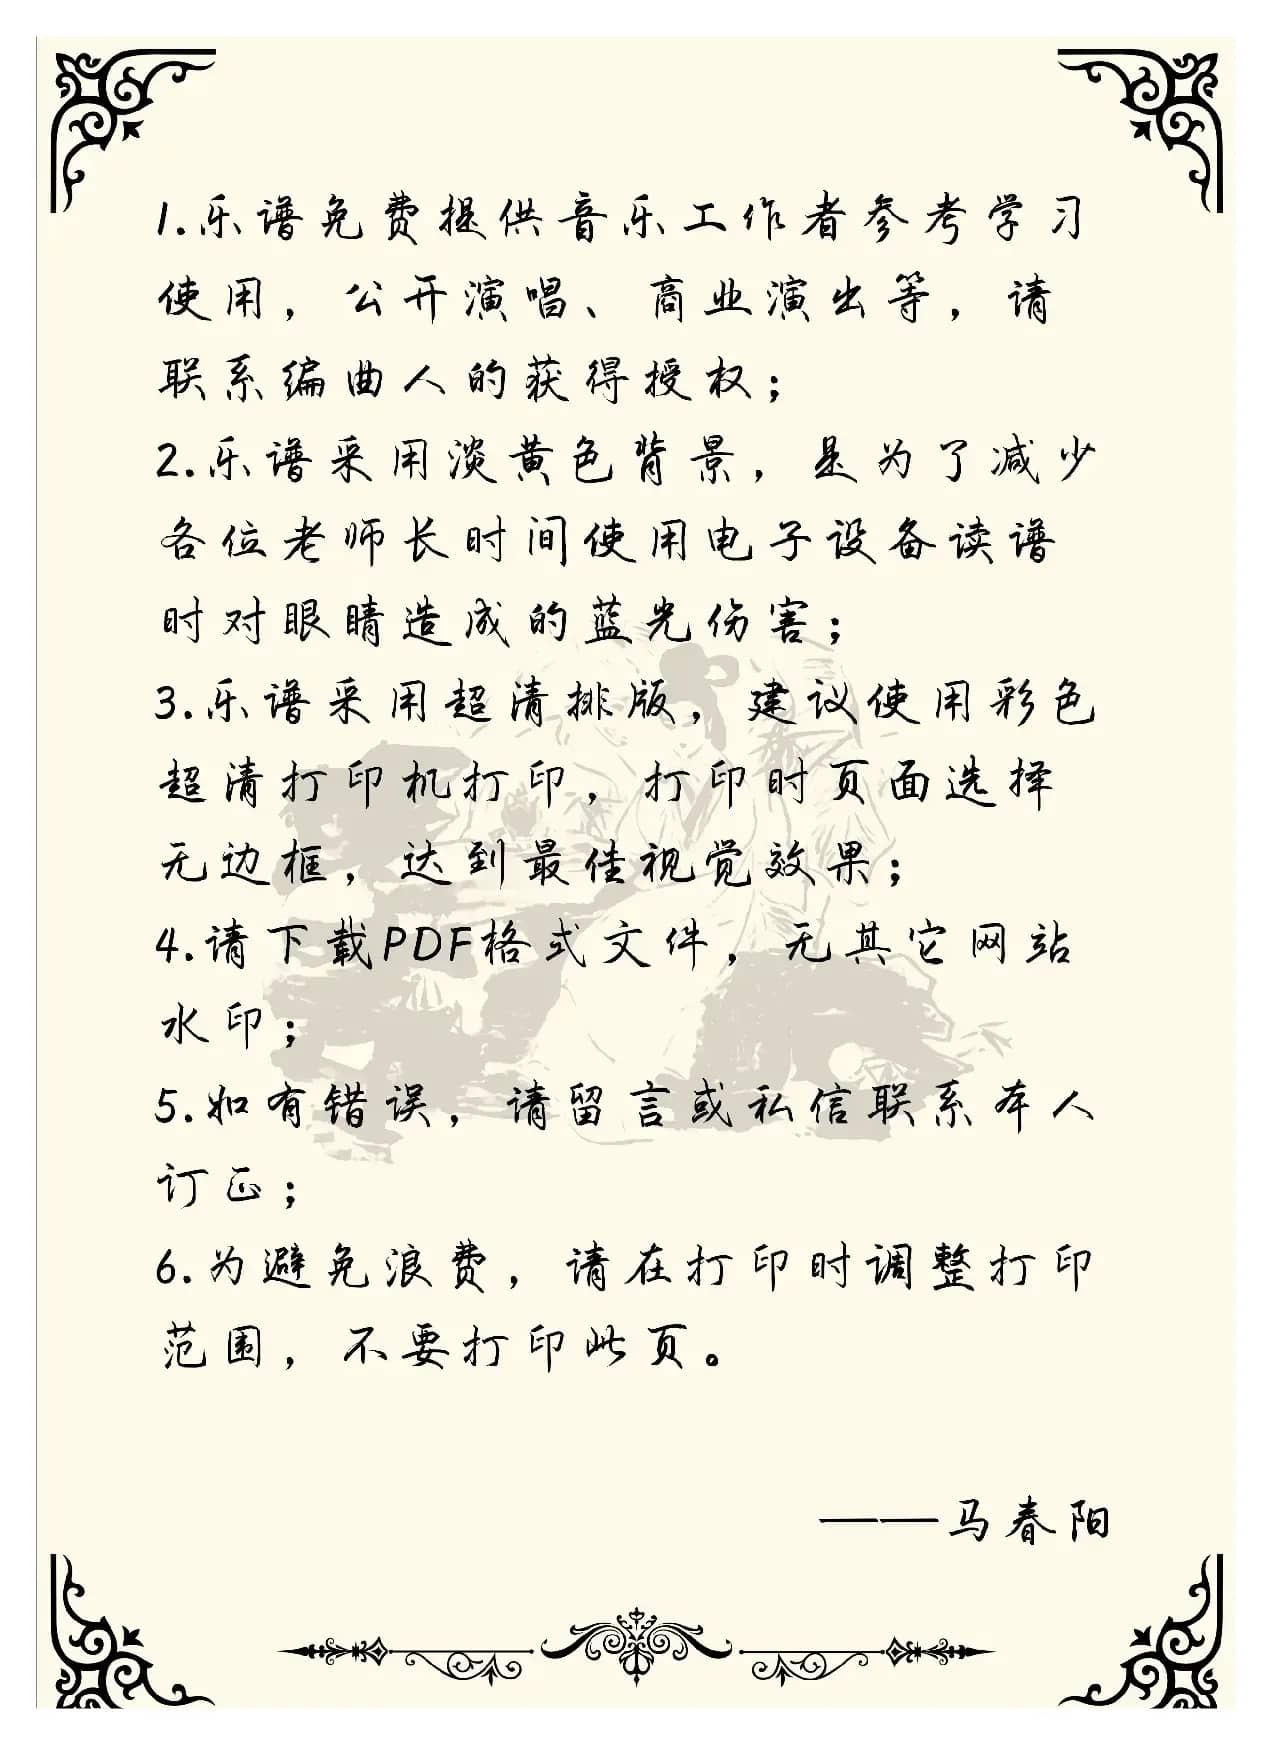 1.乐谱免费提供音乐工作者参考学习
使用，公开演唱、商业演出等，请
联系编曲人的获得授权；
2.乐谱采用淡黄色背景，是为了减少
各位老师长时间使用电子设备读谱
时对眼睛造成的蓝光伤害；
3.乐谱采用超清排版，建议使用彩色
超清打印机打印，打印时页面选择
无边框，达到最佳视觉效果；
4.请下载PDF格式文件，无其它网站
水印；
5.如有错误，请留言或私信联系本人
订正；
6.为避免浪费，请在打印时调整打印
范围，不要打印此页。
——马春阳